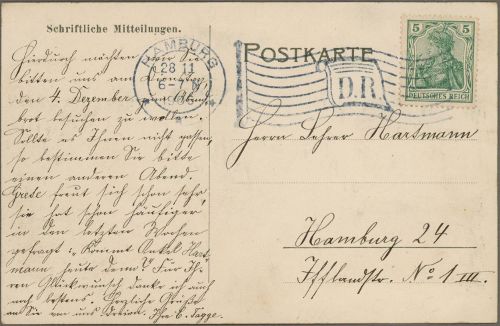 Schriftliche Mitteilungen.
Hierdurch möchten wir Sie
bitten uns am Dienstag
den 4. Dezember zum Abend
brot besuchen zu wollen.
Sollte es Ihnen nicht passen,
so bestimmen Sie bitte
einen anderen Abend.
Grete freut sich schon sehr,
sie hat schon häufiger
in den letzten Wochen
gefragt: „Kommt Onkel Hart-
mann heute denn?" Für Ih-
ren Glückwunsch danke ich auch
noch bestens. Herzliche Grüße
an Sie von uns Dreien. Ihre C. Tagge.
HAMBURG
28 11
6-7 N
POSTKARTE
D.R.
5 5
DEUTSCHES REICH
Herrn Lehrer Hartmann
Hamburg 24
Ifflandstr. No 1 III.